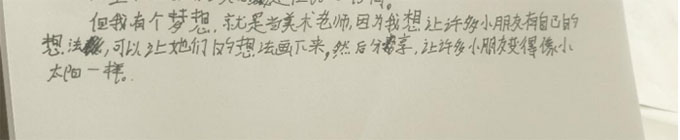 但我有个梦想，就是当美术老师，因为我想让许多小朋友有自己的
想法，可以让她们的想法画下来，然后分享，让许多小朋友变得像小
太阳一样。